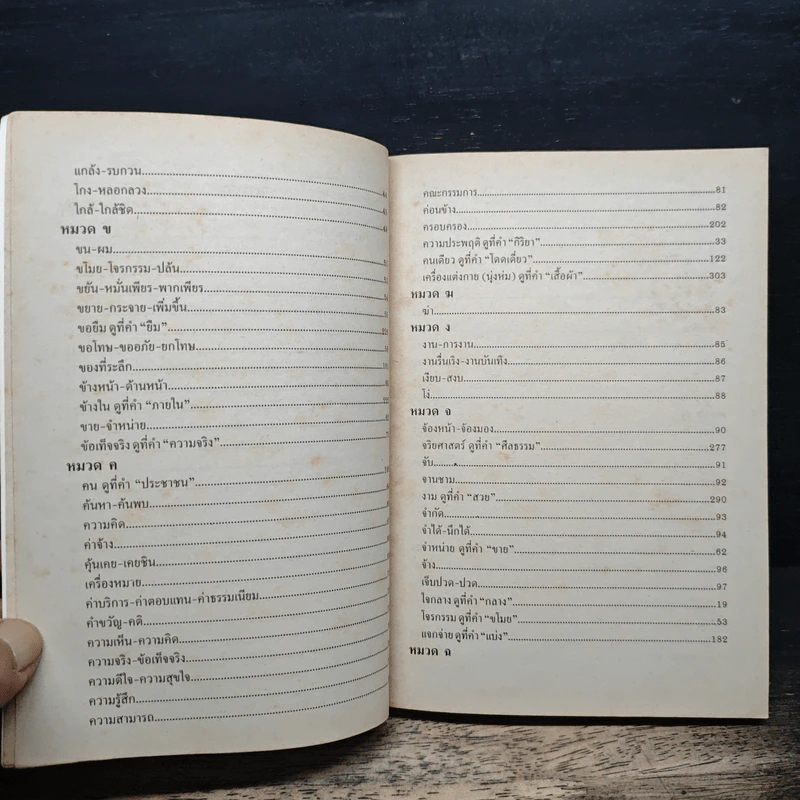 แกล้ง-รบกวน
โกง-หลอกลวง
ใกล้-ใกล้ชิด
หมวด ข
ชน-ผม
ขโมย-โจรกรรม-ปล้น
ขยัน-หมั่นเพียร-พากเพียร
ขยาย-กระจาย-เพิ่มขึ้น
ขอยืม ดูที่คำ “ยืม”
ขอโทษ-ขออภัย-ยกโทษ
ของที่ระลึก
ข้างหน้า-ด้านหน้า
ข้างใน ดูที่คำ “ภายใน”
ขาย-จำหน่าย
ข้อเท็จจริง ดูที่คำ “ความจริง”
หมวด ค
คน ดูที่คำ “ประชาชน”
ค้นหา-ค้นพบ
ความคิด
ค่าจ้าง
คุ้นเคย-เคยชิน
เครื่องหมาย
ค่าบริการ-ค่าตอบแทน-ค่าธรรมเนียม
คำขวัญ-คติ
ความเห็น-ความคิด
ความจริง-ข้อเท็จจริง
ความดีใจ-ความสุขใจ
ความรู้สึก
ความสามารถ
คณะกรรมการ 81
ค่อนข้าง 82
ครอบครอง 202
ความประพฤติ ดูที่คำ “กิริยา” 33
คนเดียว ดูที่คำ “โดดเดี่ยว” 122
เครื่องแต่งกาย (นุ่งห่ม) ดูที่คำ “เสื้อผ้า” 303
หมวด ฆ
ฆ่า 83
หมวด ง
งาน-การงาน 85
งานรื่นเริง-งานบันเทิง 86
เงียบ-สงบ 87
โง่ 88
หมวด จ
จ้องหน้า-จ้องมอง 90
จริยศาสตร์ ดูที่คำ “ศีลธรรม” 277
จับ 91
จานชาม 92
งาม ดูที่คำ “สวย” 290
จำกัด 93
จำได้-นึกได้ 94
จำหน่าย ดูที่คำ “ขาย” 62
จ้าง 96
เจ็บปวด-ปวด 97
ใจกลาง ดูที่คำ “กลาง” 19
โจรกรรม ดูที่คำ “ขโมย” 53
แจกจ่าย ดูที่คำ “แบ่ง” 182
หมวด ฉ